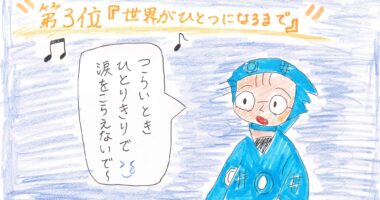 第3位『世界がひとつになるまで』
つらいとき
ひとりきりで
涙をこらえないで〜